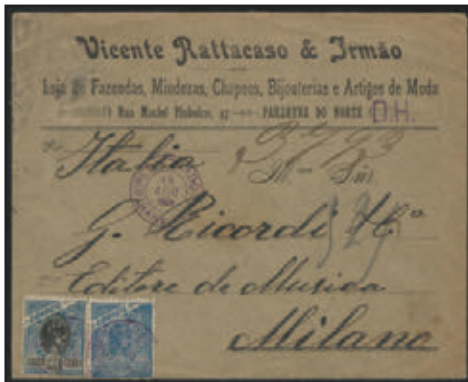 Vicente Rattacaso & Irmão
Loja de Fazendas, Miudezas, Chapeos, Bijouterias e Artigos de Moda
Rua Maciel Pinheiro, 47 PARAHYBA DO NORTE D.H.
Italia
Ill.mo Snr
G. Ricordi & C.o
Editore de Musica
Milano